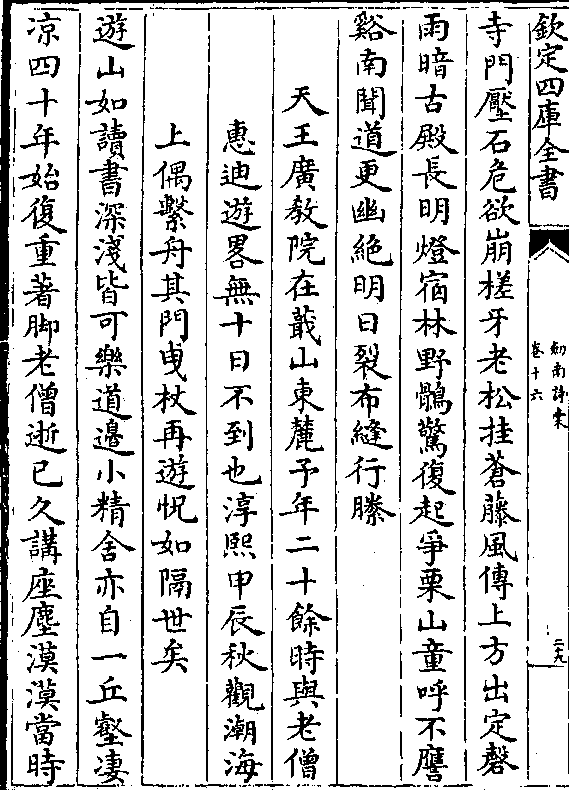 欽定四庫全書
劍南詩稾
卷十六
二十九
寺門壓石危欲崩槎牙老松挂蒼藤風傳上方出定磬
雨暗古殿長明燈宿林野鶻驚復起爭栗山童呼不譍
谿南聞道更幽絶明日裂布縫行縢
天王廣教院在蕺山東麓予年二十餘時與老僧
惠迪遊畧無十日不到也淳熙甲辰秋觀潮海
上偶繫舟其門曳杖再遊怳如隔世矣
遊山如讀書深淺皆可樂道邊小精舍亦自一丘壑凄
凉四十年始復重著脚老僧逝已久講座塵漠漠當時